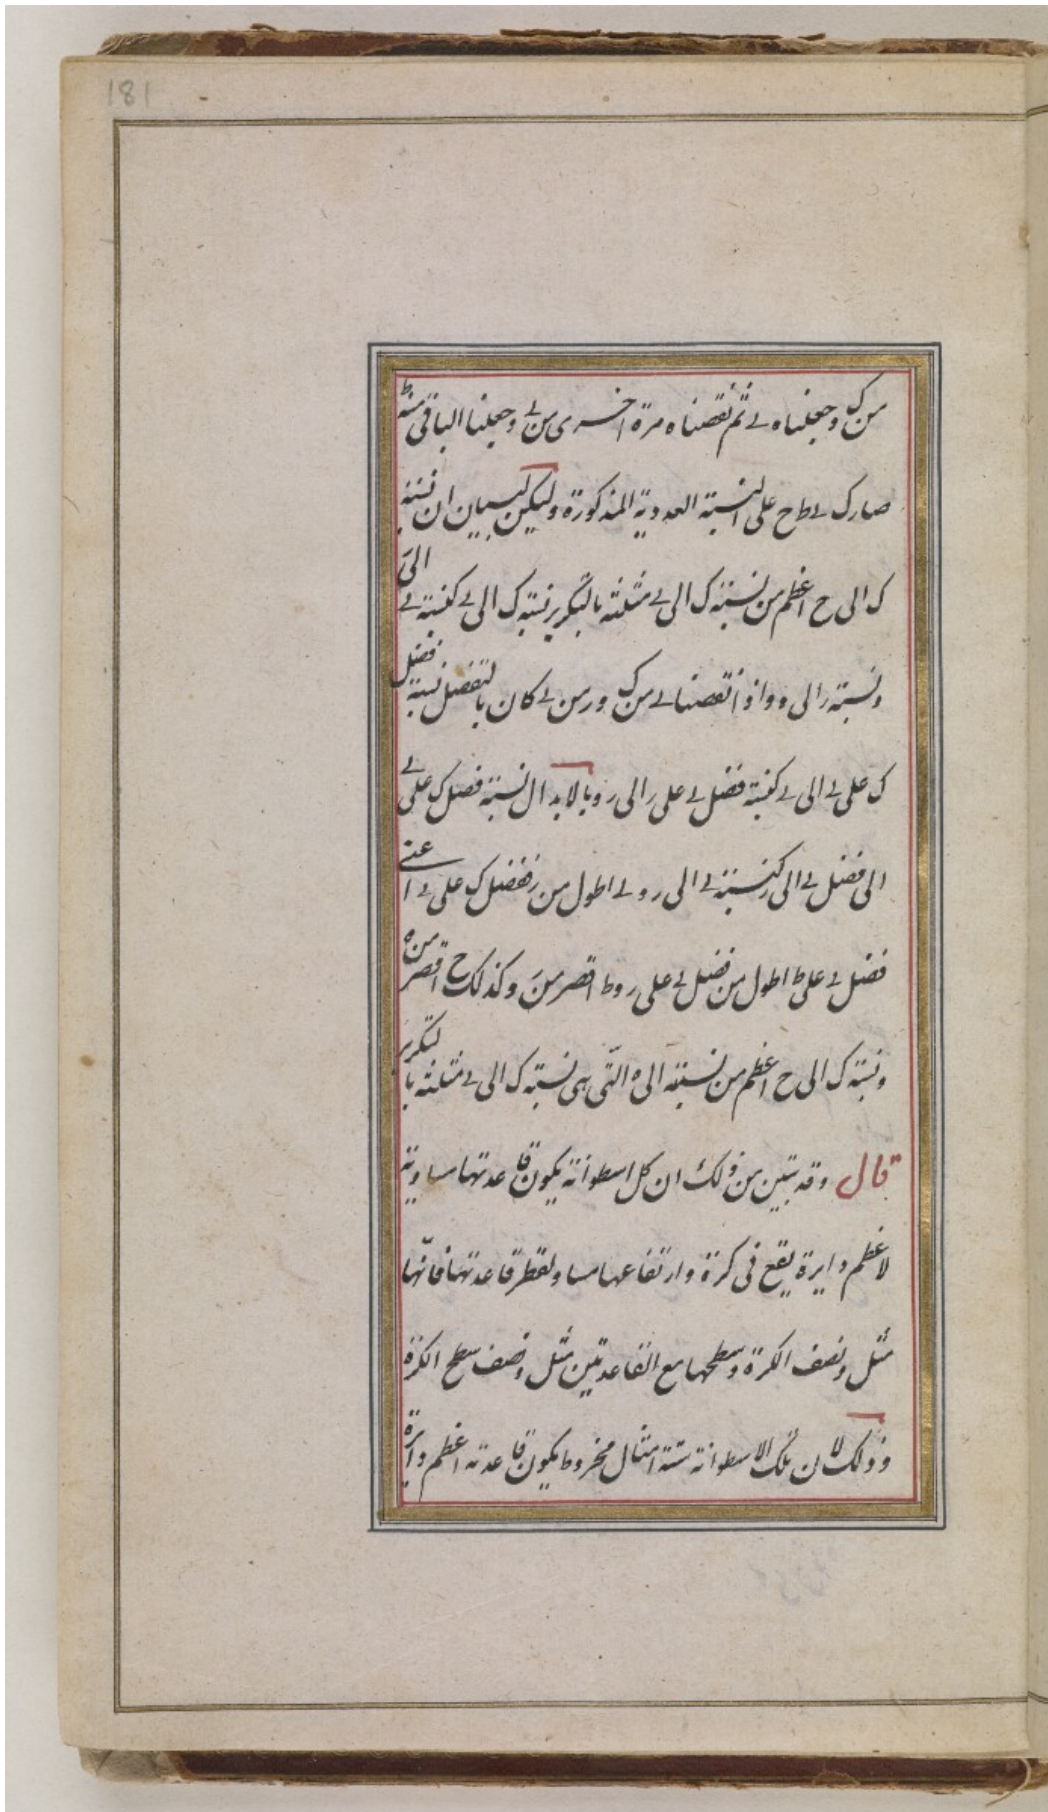 181
من ك وجعلناه ى ثم نقصناه مرة اخرى من ى وجعلنا الباقى ط
صار ك ى ط ح على النسبة العددية المذكورة وليكن لبيان ان نسبة
ك الى ح اعظم من نسبة ك الى ى مثلثة بالتكرير نسبة ك الى ى كنسبة ى الى
ونسبة ر الى ه واذا نقصنا ى من ك و ر من ى كان بالتفصيل نسبة فضل
ك على ى الى ى كنسبة فضل ى على ر الى ر وبالابدال نسبة فضل ك على ى
الى فضل ى الى ر كنسبة ى الى ر و ى اطول من ر ففضل ك على ى اعنى
فضل ى على ط اطول من فضل ى على ر و ط اقصر من ر وكذلك ح اقصر من ه
ونسبة ك الى ح اعظم من نسبته الى ه التى هى نسبة ك الى ى مثلثة بالتكرير
قال وقد تبين من ذلك ان كل اسطوانة يكون قاعدتها مساوية
لاعظم دايرة يقع فى كرة وارتفاعها مساو لقطر قاعدتها فانّها
مثل ونصف الكرة وسطحها مع القاعدتين مثل ونصف سطح الكرة
وذلك لان تلك الاسطوانة ستة امثال مخروط يكون قاعدته اعظم دايرة